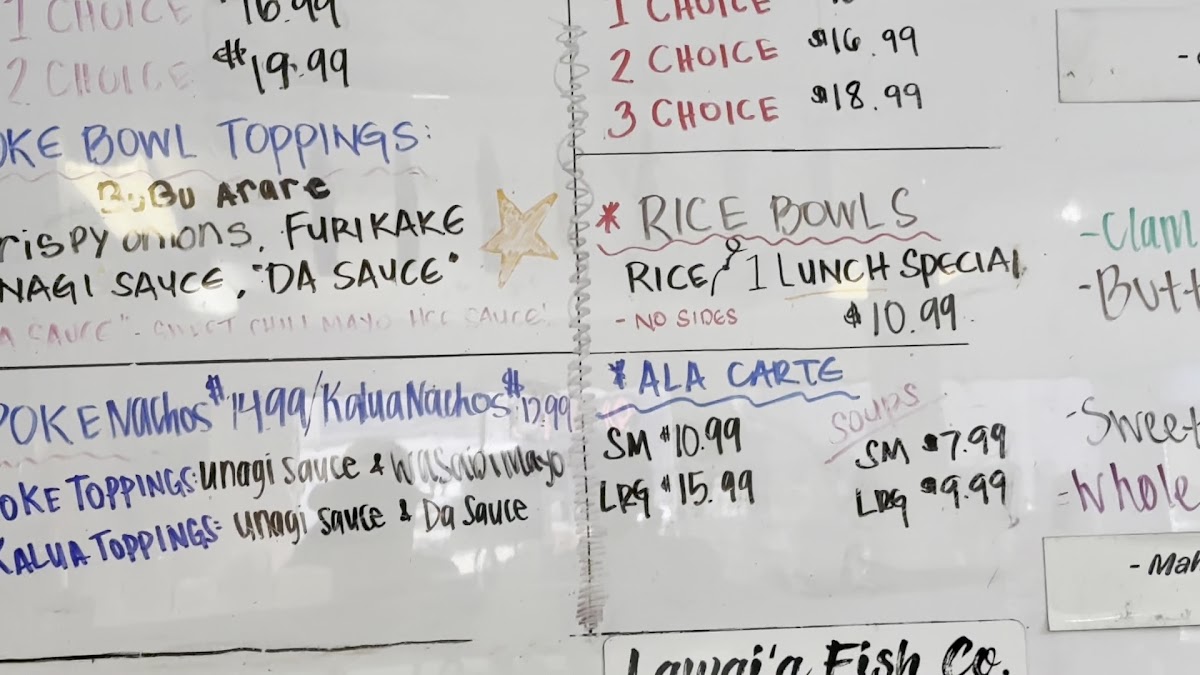 1 CHOICE $16.99
2 CHOICE $19.99
OKE BOWL TOPPINGS:
BuBu Arare
rispy onions, FURIKAKE
NAGI SAUCE, "DA SAUCE"
A SAUCE" - SWEET CHILI MAYO HCC SAUCE
POKE Nachos $14.99/Kalua Nachos $12.99
OKE TOPPINGS: unagi sauce & wasabi mayo
KALUA TOPPINGS: unagi sauce & Da Sauce
1 CHOICE
2 CHOICE $16.99
3 CHOICE $18.99
* RICE BOWLS
RICE/& 1 LUNCH SPECIAL
- NO SIDES $10.99
* ALA CARTE
SM $10.99
LRG $15.99
SOUPS
SM $7.99
LRG $9.99
Lawai'a Fish Co.
- Clam
- Butt
- Sweet
- Whole
- Mah